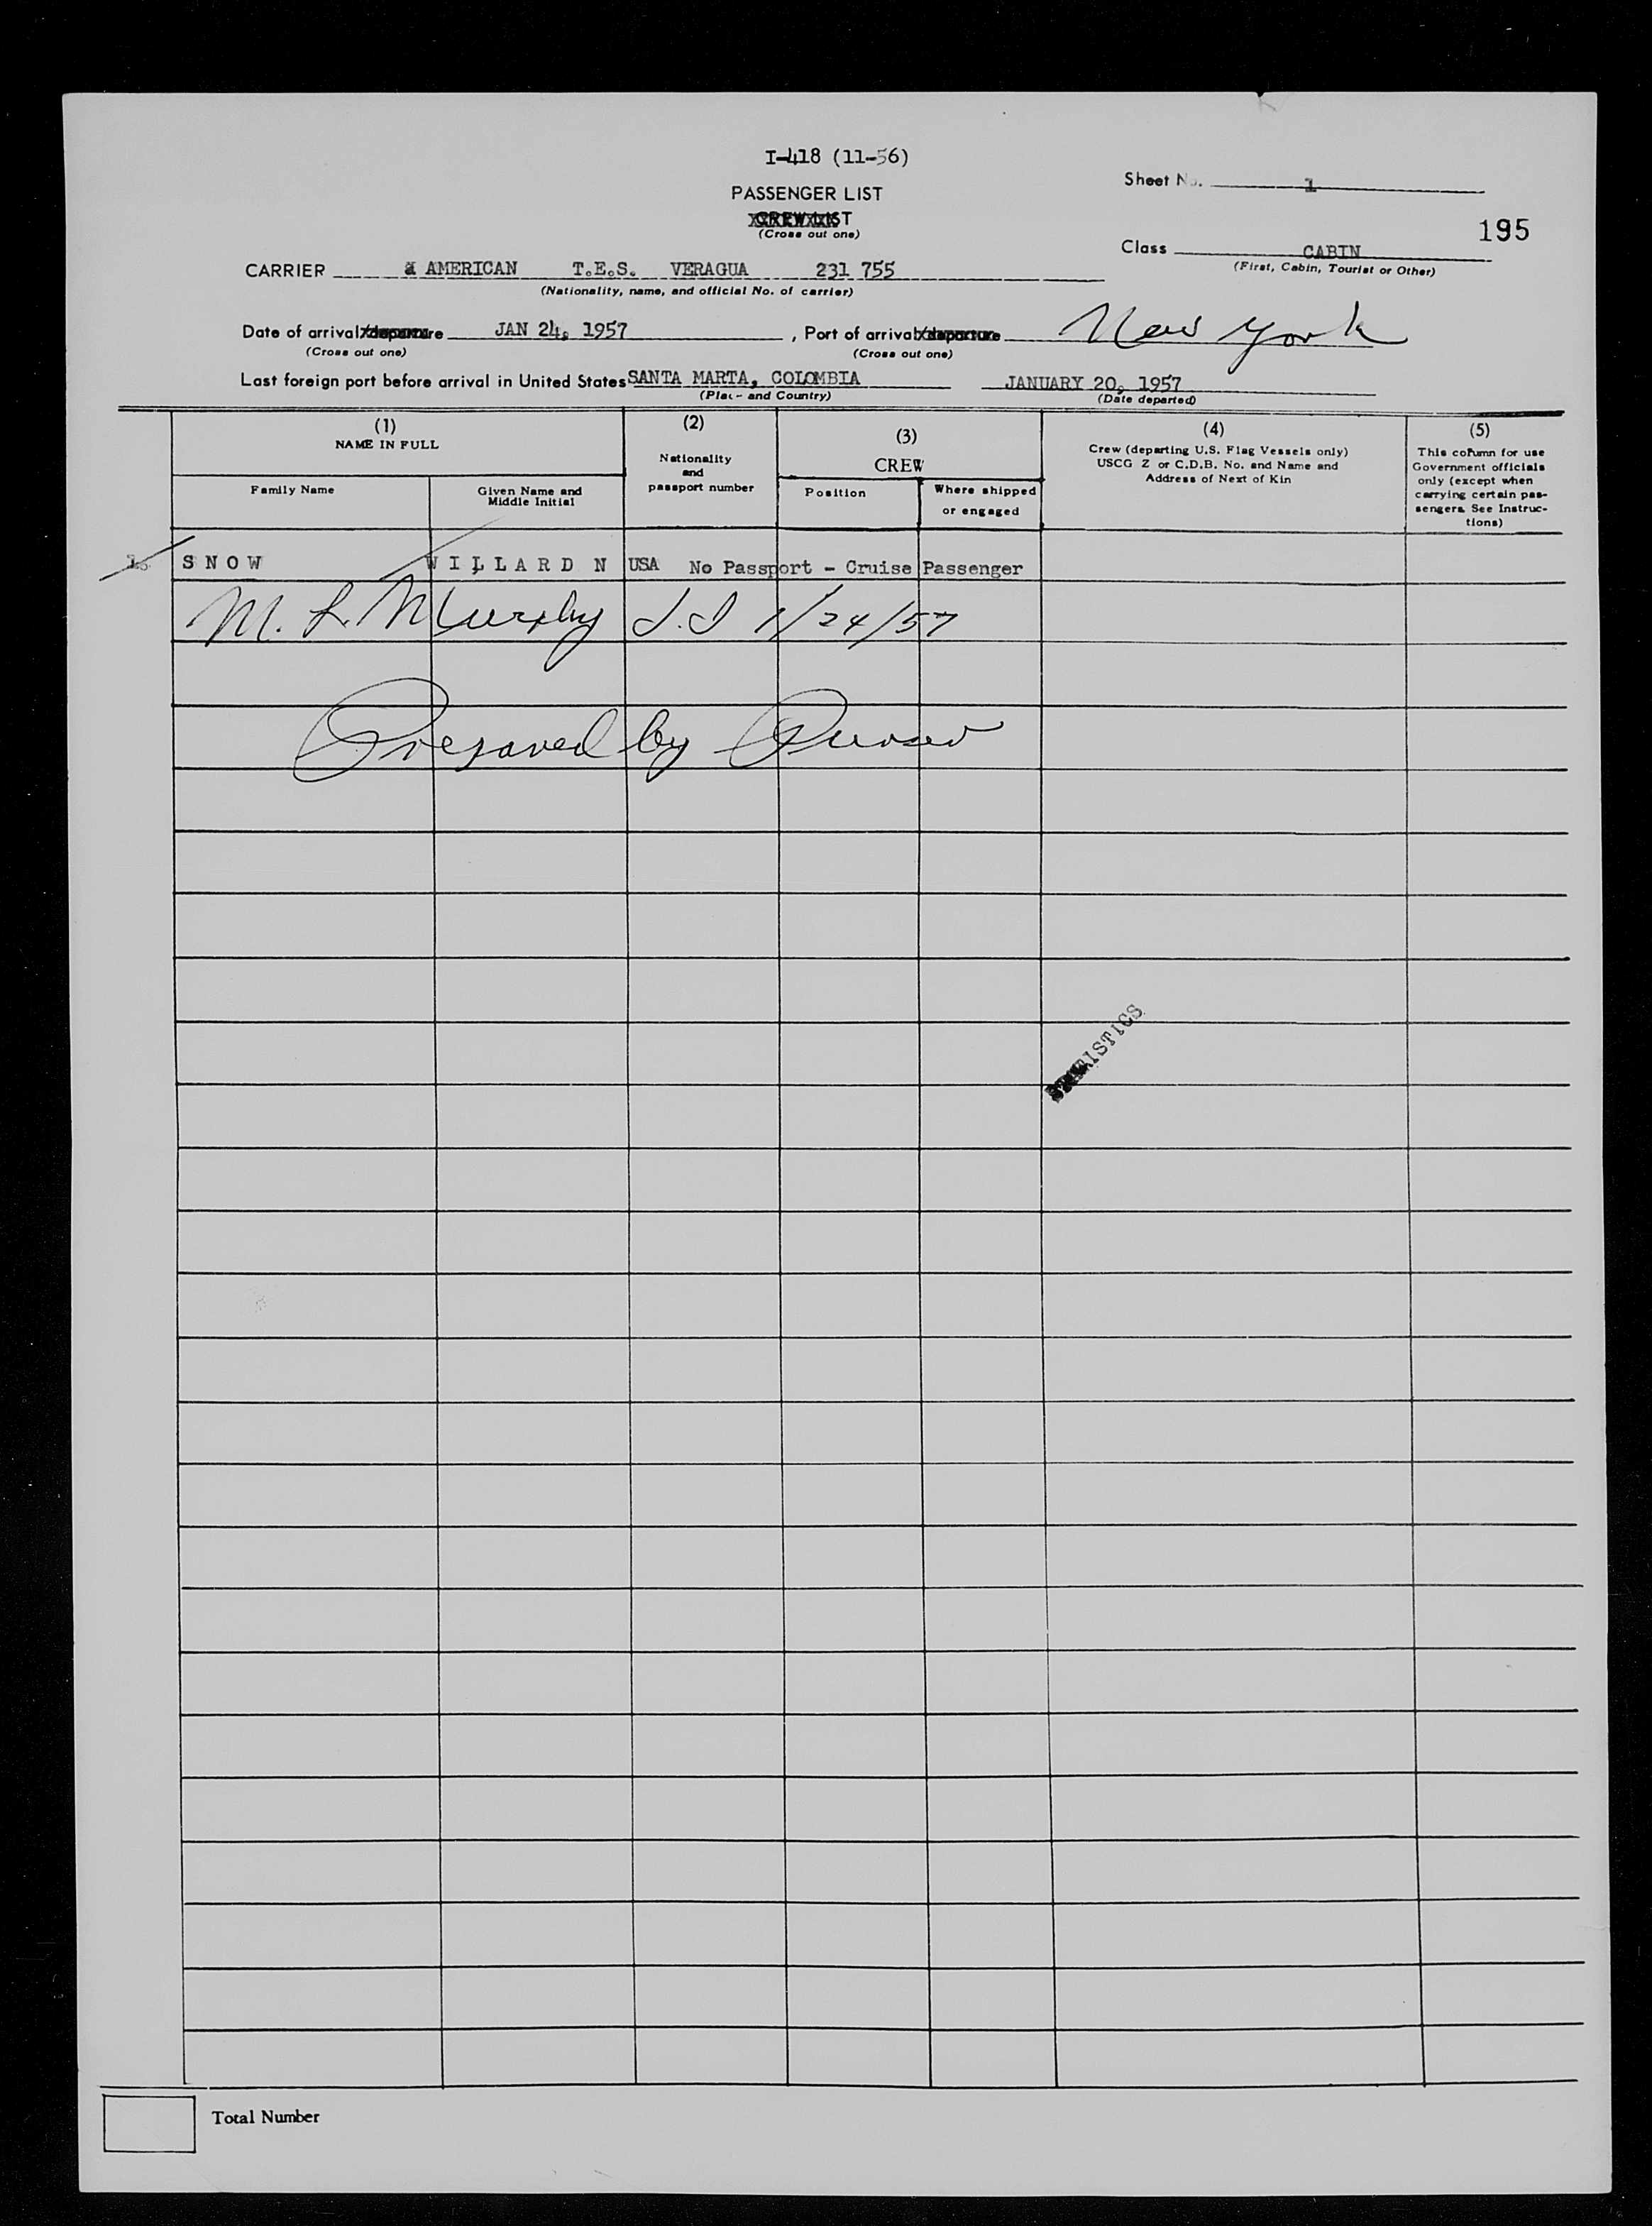 I-418 (11-56)
Sheet No. 1
PASSENGER LIST
CREW LIST
(Cross out one)
195
Class CABIN
(First, Cabin, Tourist or Other)
CARRIER AMERICAN T.E.S. VERAGUA 231 755
(Nationality, name, and official No. of carrier)
Date of arrival/departure JAN 24, 1957 , Port of arrival/departure New York
(Cross out one) (Cross out one)
Last foreign port before arrival in United States SANTA MARTA, COLOMBIA JANUARY 20, 1957
(Place and Country) (Date departed)
(1)
NAME IN FULL
Family Name
Given Name and
Middle Initial
(2)
Nationality
and
passport number
(3)
CREW
Position
Where shipped
or engaged
(4)
Crew (departing U.S. Flag Vessels only)
USCG Z or C.D.B. No. and Name and
Address of Next of Kin
(5)
This column for use
Government officials
only (except when
carrying certain pas-
sengers. See Instruc-
tions)
1. SNOW WILLARD N USA No Passport - Cruise Passenger
M. L. Murphy I.I 1/24/57
Prepared by Purser
STATISTICS
Total Number